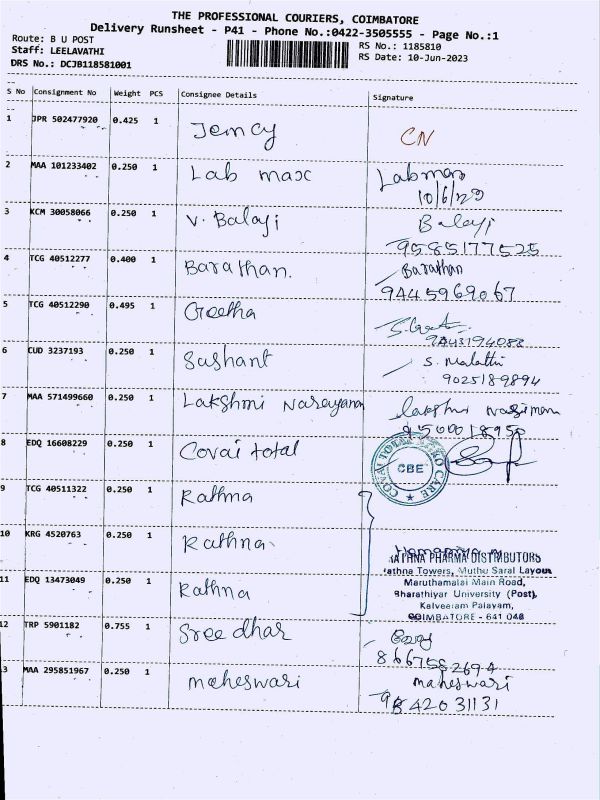 THE PROFESSIONAL COURIERS, COIMBATORE
Delivery Runsheet - P41 - Phone No.:0422-3505555 - Page No.:1
Route: B U POST
RS No.: 1185810
Staff: LEELAVATHI
RS Date: 10-Jun-2023
DRS No.: DCJB118581001
S No Consignment No Weight PCS Consignee Details Signature
1 JPR 502477920 0.425 1 Jemcy CN
2 MAA 101233402 0.250 1 Lab max Labmax
10/6/23
3 KCM 30058066 0.250 1 V. Balaji Balaji
9585177525
4 TCG 40512277 0.400 1 Barathan. Barathan
9445969067
5 TCG 40512290 0.495 1 Geetha
9843194088
6 CUD 3237193 0.250 1 Sushant S. Malathi
9025189894
7 MAA 571499660 0.250 1 Lakshmi Narayanan
8 EDQ 16608229 0.250 1 Covai total
COVAI TOTAL CARE
CBE
9 TCG 40511322 0.250 1 Rathna
10 KRG 4520763 0.250 1 Rathna
RATHNA PHARMA DISTRIBUTORS
Rathna Towers, Muthu Saral Layout
11 EDQ 13473049 0.250 1 Rathna
Maruthamalai Main Road,
Bharathiyar University (Post),
Kalveeram Palayam,
COIMBATORE - 641 046
12 TRP 5901182 0.755 1 Sree dhar
8667582694
13 MAA 295851967 0.250 1 maheswari maheswari
9842031131